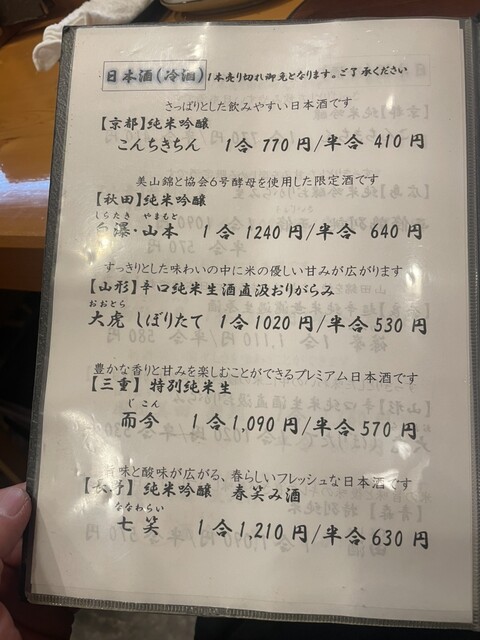 日本酒(冷酒) 1本売り切れ御免となります。ご了承ください
さっぱりとした飲みやすい日本酒です
【京都】純米吟醸
こんちきちん 1合 770円/半合 410円
美山錦と協会6号酵母を使用した限定酒です
【秋田】純米吟醸
しらたき やまもと
白瀑・山本 1合 1240円/半合 640円
すっきりとした味わいの中に米の優しい甘みが広がります
【山形】辛口純米生酒直汲おりがらみ
おおとら
大虎 しぼりたて 1合 1020円/半合 530円
豊かな香りと甘みを楽しむことができるプレミアム日本酒です
【三重】 特別純米生
じこん
而今 1合 1,090円/半合 570円
味と酸味が広がる、春らしいフレッシュな日本酒です
【長野】 純米吟醸 春笑み酒
ななわらい
七笑 1合 1,210円/半合 630円